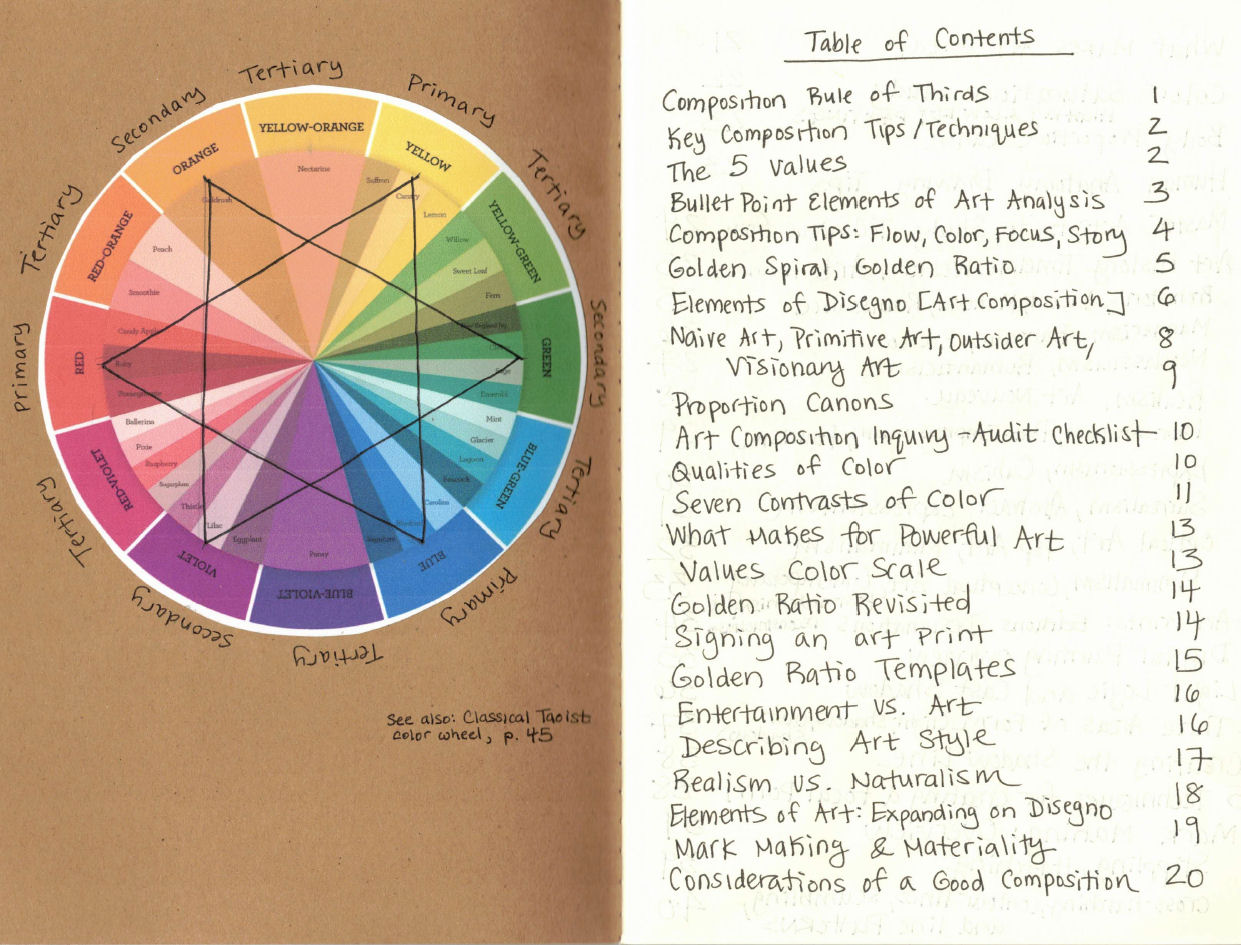 Tertiary
Primary
Tertiary
Secondary
Tertiary
Primary
Tertiary
Secondary
Tertiary
Primary
Tertiary
Secondary
YELLOW-ORANGE
YELLOW
YELLOW-GREEN
GREEN
BLUE-GREEN
BLUE
BLUE-VIOLET
VIOLET
RED-VIOLET
RED
RED-ORANGE
ORANGE
Nectarine
Saffron
Canary
Lemon
Willow
Sweet Leaf
Fern
New England Ivy
Sage
Emerald
Mint
Glacier
Lagoon
Peacock
Carolina
Pansy
Eggplant
Lilac
Thistle
Sugarplum
Raspberry
Pixie
Ballerina
Pomegranate
Ruby
Candy Apple
Smoothie
Peach
Goldrush
See also: Classical Taoist
color wheel, p. 45
Table of Contents
Composition Rule of Thirds 1
Key Composition Tips/Techniques 2
The 5 values 2
Bullet Point Elements of Art Analysis 3
Composition Tips: Flow, Color, Focus, Story 4
Golden Spiral, Golden Ratio 5
Elements of Disegno [Art Composition] 6
Naive Art, Primitive Art, Outsider Art, 8
Visionary Art
Proportion Canons 9
Art Composition Inquiry + Audit Checklist 10
Qualities of Color 10
Seven Contrasts of Color 11
What Makes for Powerful Art 13
Values Color Scale 13
Golden Ratio Revisited 14
Signing an art print 14
Golden Ratio Templates 15
Entertainment vs. Art 16
Describing Art Style 16
Realism vs. Naturalism 17
Elements of Art: Expanding on Disegno 18
Mark Making & Materiality 19
Considerations of a Good Composition 20